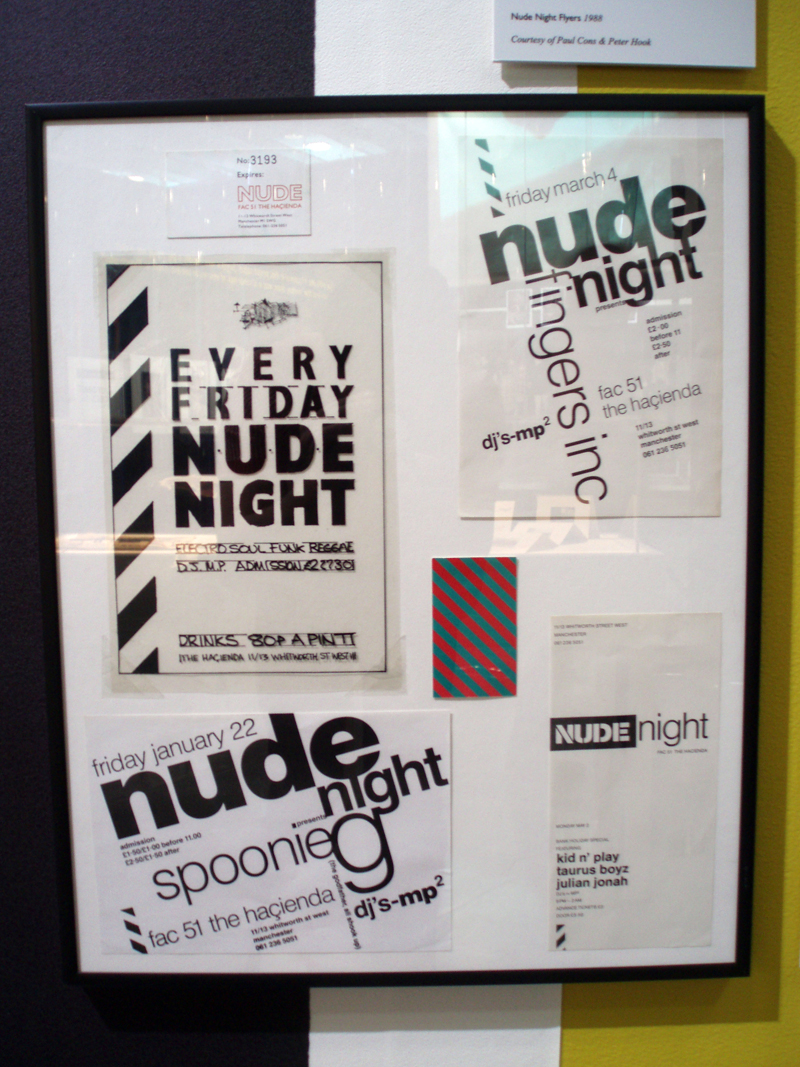 Nude Night Flyers 1988
Courtesy of Paul Cons & Peter Hook
No: 3193
Expires:
NUDE
FAC 51 THE HAÇIENDA
friday march 4
nude
night
presents
fingers inc
admission
£2·00
before 11
£2·50
after
fac 51
the haçienda
dj's-mp2
11/13
whitworth st west
manchester
061 236 5051
EVERY
FRIDAY
NUDE
NIGHT
ELECTRO SOUL FUNK REGGAE
D.J. M.P. ADMISSION
DRINKS 80P A PINT
THE HAÇIENDA 11/13 WHITWORTH ST WEST
friday january 22
nude
night
presents
admission
£1·50/£1·00 before 11.00
£2·50/£1·50 after
spoonie g
(the godfather, all shook up)
dj's-mp2
fac 51 the haçienda
11/13 whitworth st west
manchester
061 236 5051
11/13 WHITWORTH STREET WEST
MANCHESTER
061 236 5051
NUDE night
FAC 51 THE HAÇIENDA
BANK HOLIDAY SPECIAL
FEATURING
kid n' play
taurus boyz
julian jonah